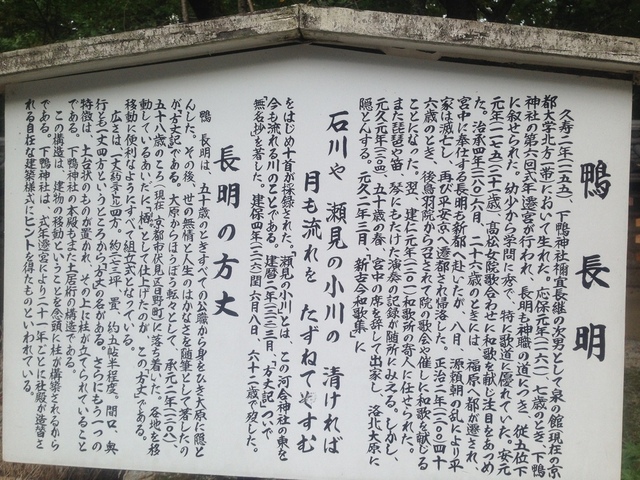 鴨長明
久寿二年(一一五五)、下鴨神社禰宜長継の次男として泉の館(現在の京
都大学北方一帯)において生れた。応保元年(一一六一)七歳のとき、下鴨
神社の第六回式年遷宮が行われ、長明も神職の道につき、従五位下
に叙せられた。幼少から学問に秀で、特に歌道に優れていた。安元
元年(一一七五)二十一歳、高松女院歌合わせに和歌を献じ注目をあつめ
た。治承四年(一一八〇)六月、二十六歳のときには、福原へ都が遷され、
宮中に奉仕する長明も新都へ赴いたが、八月、源頼朝の乱により平
家は滅亡し、再び平安京へ遷都され帰洛した。正治二年(一二〇〇)四十
六歳のとき、後鳥羽院から召されて院の歌会や催しに和歌を献じる
ことになった。翌、建仁元年(一二〇一)和歌所の寄人に任せられた。
また琵琶や笛、琴にもたけた演奏の記録が随所にみえる。しかし、
元久元年(一二〇四)、五十歳の春、宮中の席を辞して出家し、洛北大原に
隠とんする。元久二年三月、『新古今和歌集』に
石川や 瀬見の小川の 清ければ
月も流れを たずねてやすむ
をはじめ十首が採録された。「瀬見の小川」とは、この河合神社の東を
今も流れる川のことである。建暦二年(一二一二)三月、『方丈記』ついで
『無名抄』を著した。建保四年(一二一六)閏六月八日、六十二歳で歿した。
長明の方丈
鴨 長明は、五十歳のときすべての公職から身をひき大原に隠と
んした。その後、世の無情と人生のはかなさを随筆として著したの
が『方丈記』である。大原からほうぼう転々として、承元二年(一二〇八)、
五十八歳のころ(現在、京都市伏見区日野町)に落ち着いた。各地を移
動しているあいだに、「栖」として仕上げたのが、この「方丈」である。
移動に便利なようにすべて組立式となっている。
広さは、一丈(約三㍍)四方。約二・七三坪。畳、約五帖半程度。間口、奥
行とも一丈四方というところから「方丈」の名がある。さらにもう一つの
特徴は、土台状のものが置かれ、その上に柱が立てられていること
である。下鴨神社の本殿もまた土居桁の構造である。
この構造は、建物の移動ということを念頭に柱が構築されるから
である。下鴨神社は、式年遷宮により二十一年ごとに社殿が造替さ
れる自在な建築様式にヒントを得たものといわれている。